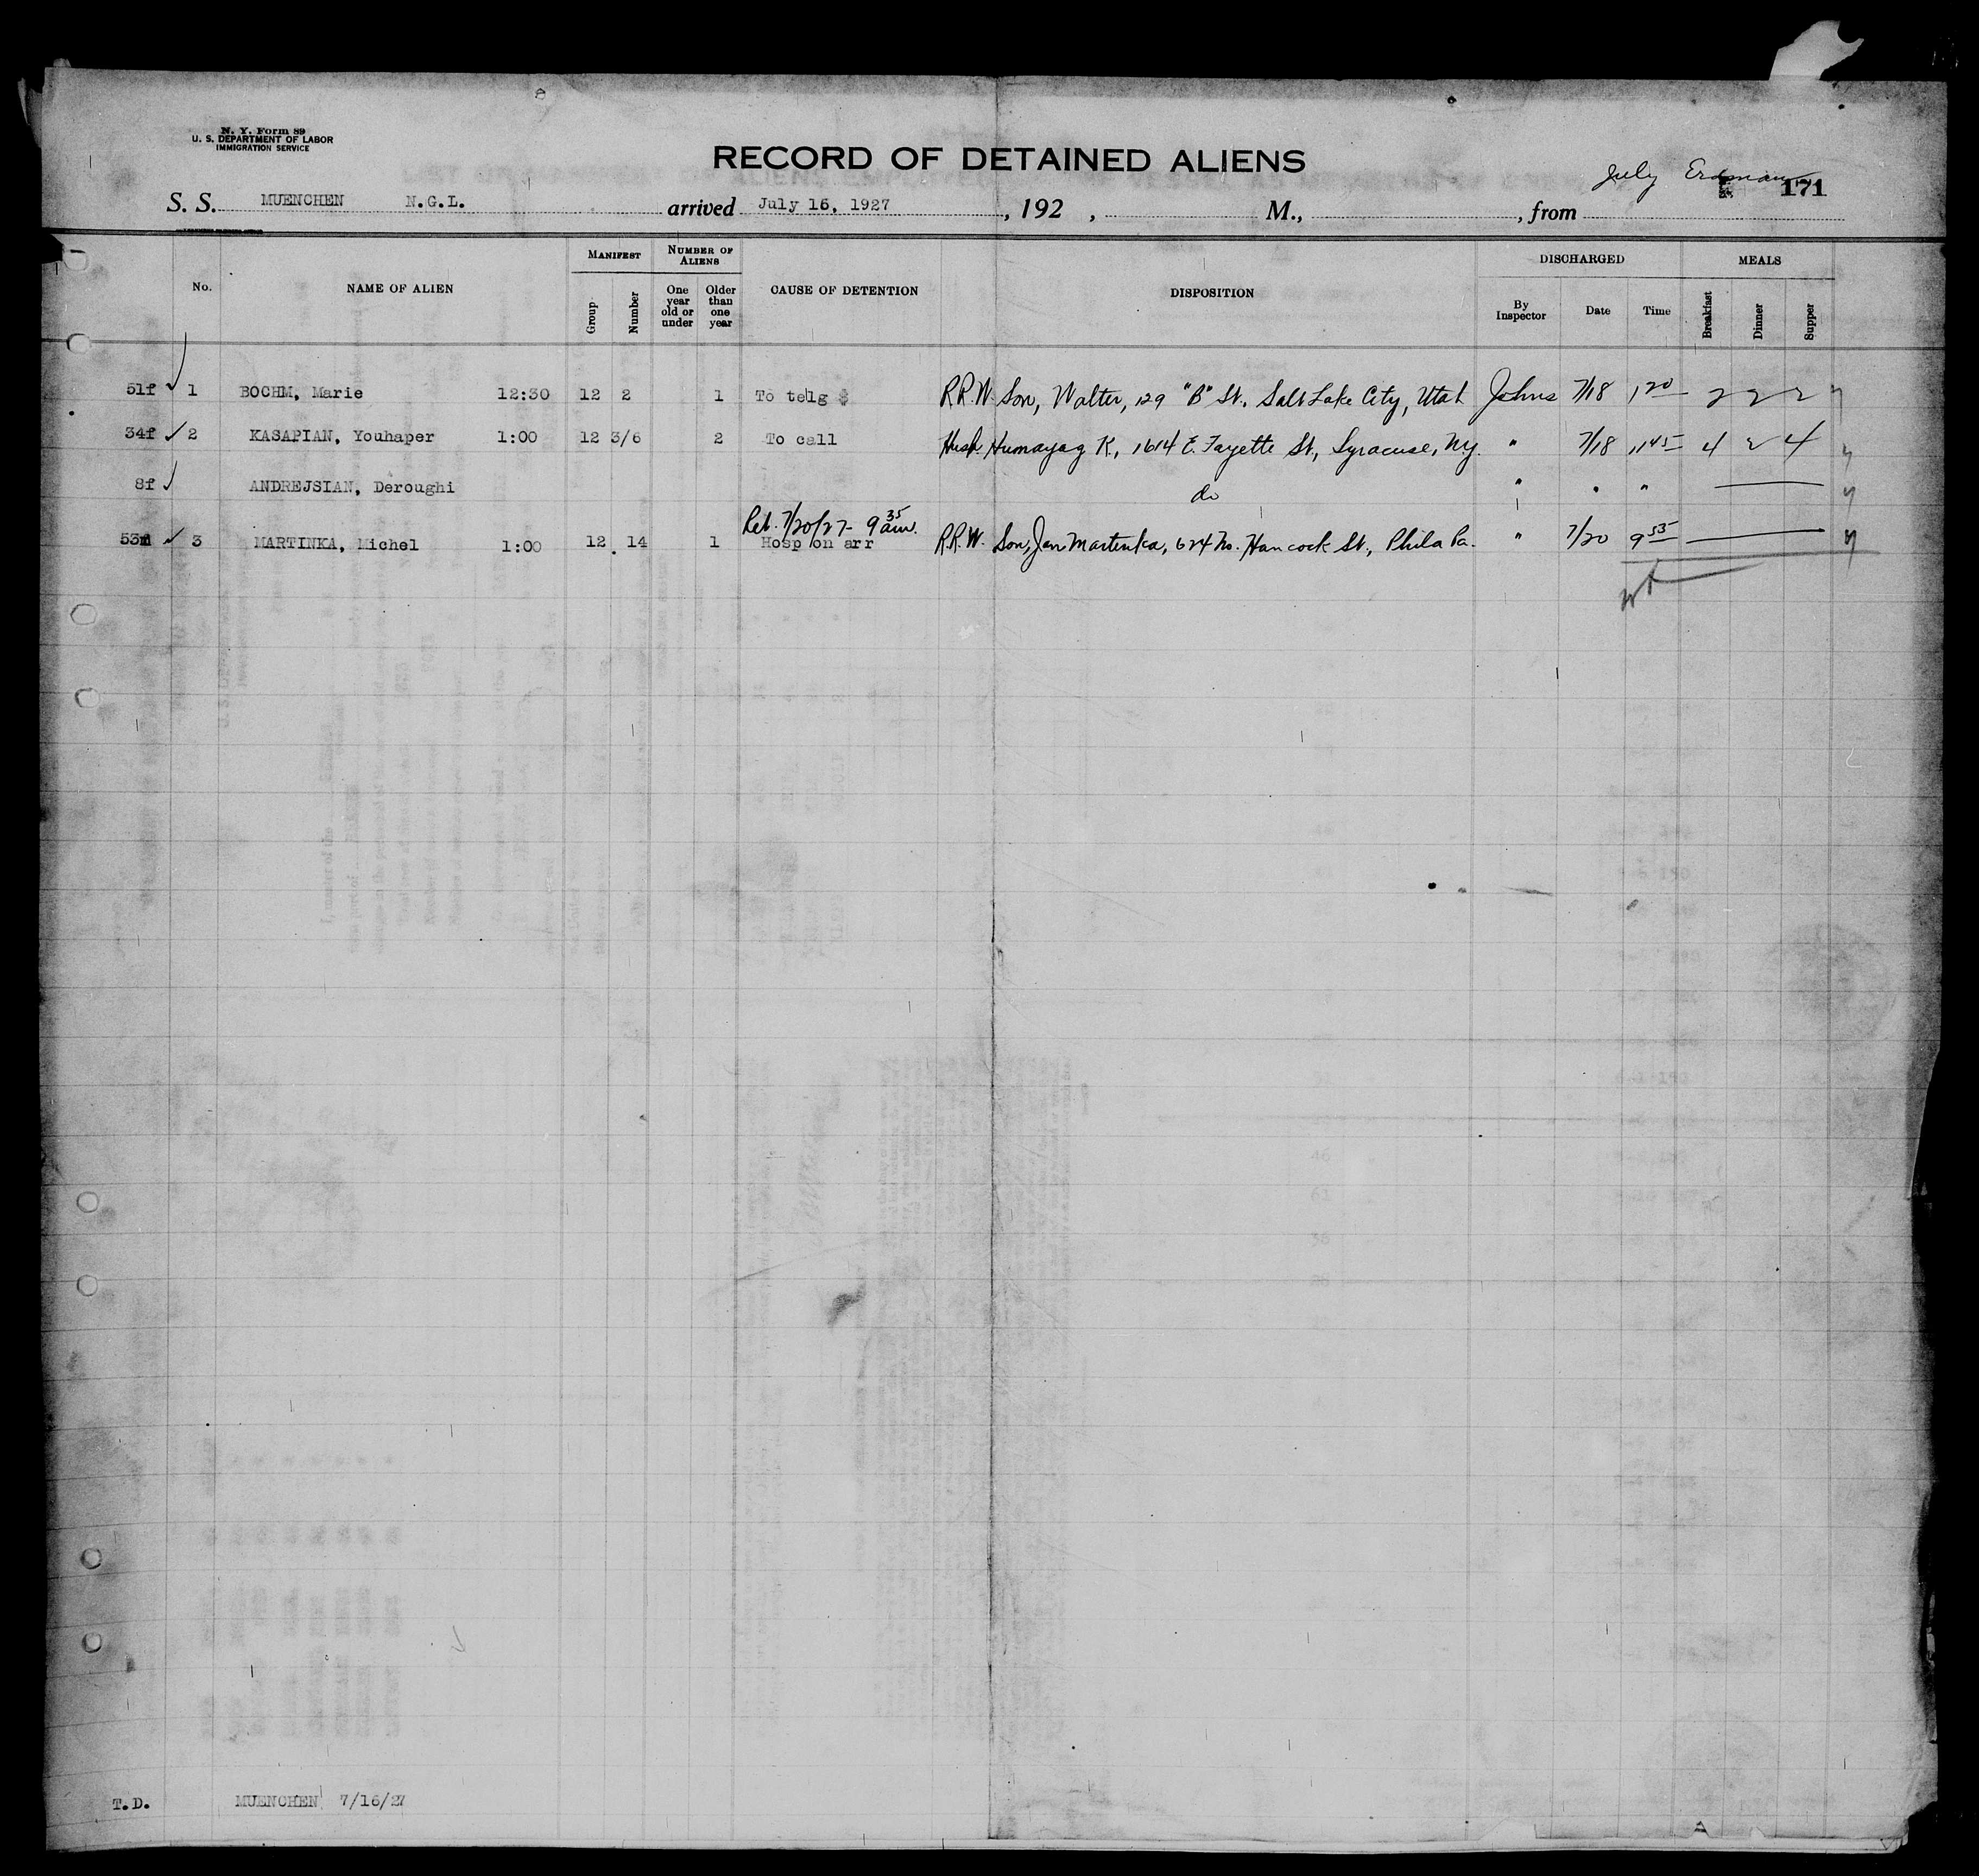 N. Y. Form 89
U. S. DEPARTMENT OF LABOR
IMMIGRATION SERVICE
RECORD OF DETAINED ALIENS
July Erdman 171
S. S. MUENCHEN N.G.L. arrived July 16, 1927, 192 , M., , from
No. NAME OF ALIEN MANIFEST Group Number NUMBER OF ALIENS One year old or under Older than one year CAUSE OF DETENTION DISPOSITION DISCHARGED By Inspector Date Time MEALS Breakfast Dinner Supper
51f ✓ 1 BOCHM, Marie 12:30 12 2 1 To telg $ R.R.W. Son, Walter, 129 "B" St. Salt Lake City, Utah Johns 7/18 1 20 2 2 2
34f ✓ 2 KASAPIAN, Youhaper 1:00 12 3/6 2 To call Husb. Humayag K., 1614 E. Fayette St, Syracuse, Ny. " 7/18 11 45 4 2 4
8f ✓ ANDREJSIAN, Deroughi do " " "
Reb. 7/20/27- 9 35 am.
53m ✓ 3 MARTINKA, Michel 1:00 12 14 1 Hosp on arr R.R.W. Son, Jan Martinka, 624 No. Hancock St., Phila Pa. " 7/20 9 55
T.D. MUENCHEN 7/16/27